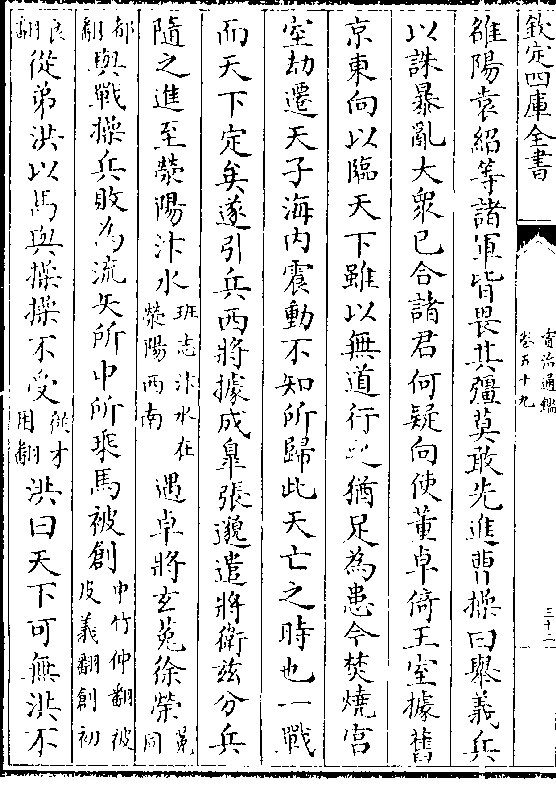 欽定四庫全書
資治通鑑
卷五十九
三十二
雒陽袁紹等諸軍皆畏其彊莫敢先進曹操曰舉義兵
以誅暴亂大衆已合諸君何疑向使董卓倚王室據舊
京東向以臨天下雖以無道行之猶足為患今焚燒宫
室劫遷天子海内震動不知所歸此天亡之時也一戰
而天下定矣遂引兵西將據成臯張邈遣將衛兹分兵
隨之進至滎陽汴水班志汴水在滎陽西南遇卓將玄菟徐榮菟同
都翻與戰操兵敗為流矢所中所乘馬被創中竹仲翻被皮義翻創初
良翻從弟洪以馬與操操不受從才用翻洪曰天下可無洪不